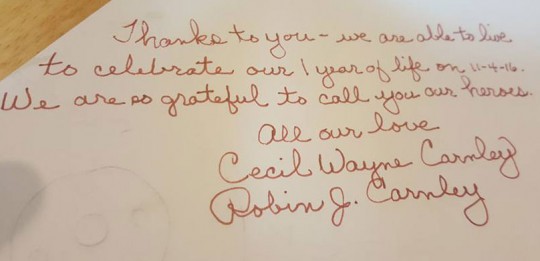 Thanks to you - we are able to live
to celebrate our 1 year of life on 11-4-16.
We are so grateful to call you our heroes.
All our love
Cecil Wayne Carnley
Robin J. Carnley